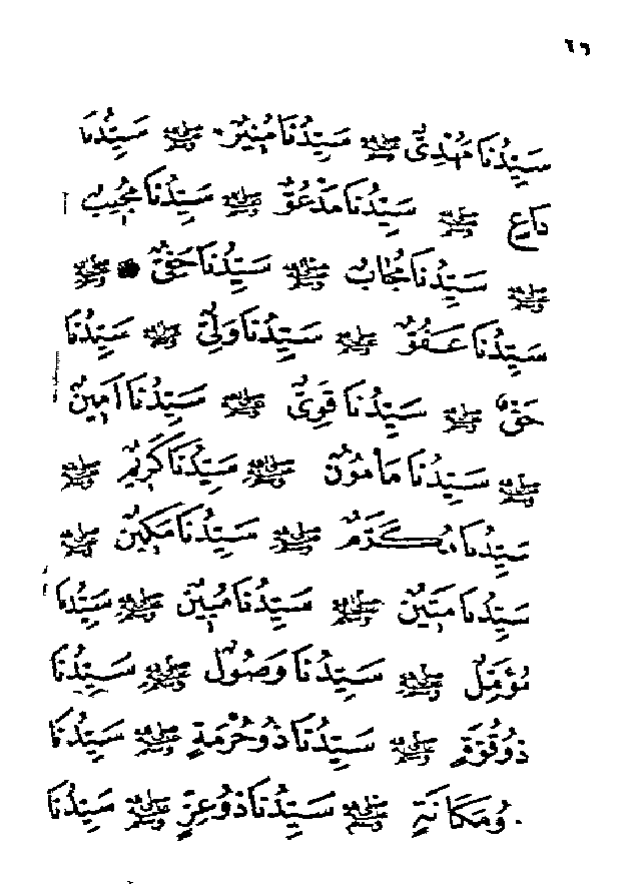 ٦٦
سَيِّدُنَا مَهْدِيٌّ ﷺ سَيِّدُنَا مُنِيرٌ ﷺ سَيِّدُنَا
دَاعٍ ﷺ سَيِّدُنَا مَدْعُوٌّ ﷺ سَيِّدُنَا مُجِيبٌ
ﷺ سَيِّدُنَا مُجَابٌ ﷺ سَيِّدُنَا حَفِيٌّ ﷺ
سَيِّدُنَا عَفُوٌّ ﷺ سَيِّدُنَا وَلِيٌّ ﷺ سَيِّدُنَا
حَقٌّ ﷺ سَيِّدُنَا قَوِيٌّ ﷺ سَيِّدُنَا اَمِينٌ
ﷺ سَيِّدُنَا مَامُونٌ ﷺ سَيِّدُنَا كَرِيمٌ ﷺ
سَيِّدُنَا مُكَرَّمٌ ﷺ سَيِّدُنَا مَكِينٌ ﷺ
سَيِّدُنَا مَتِينٌ ﷺ سَيِّدُنَا مُبِينٌ ﷺ سَيِّدُنَا
مُؤَمَّلٌ ﷺ سَيِّدُنَا وَصُولٌ ﷺ سَيِّدُنَا
ذُو قُوَّةٍ ﷺ سَيِّدُنَا ذُو حُرْمَةٍ ﷺ سَيِّدُنَا
ذُو مَكَانَةٍ ﷺ سَيِّدُنَا ذُو عِزٍّ ﷺ سَيِّدُنَا